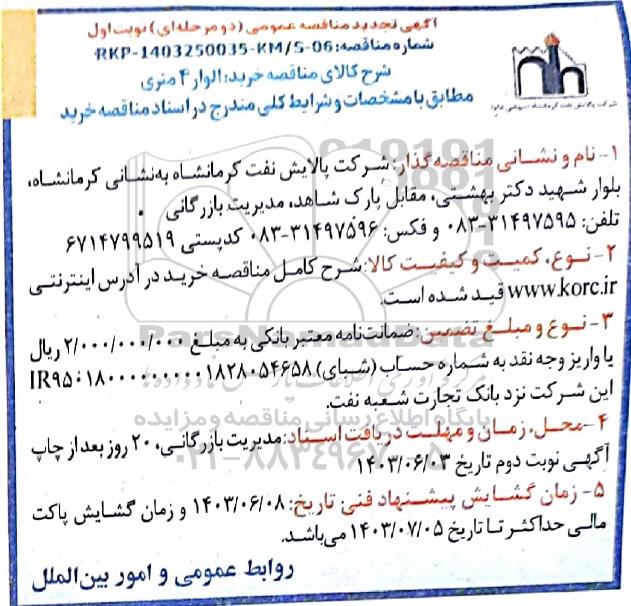 آگهی تجدید مناقصه عمومی (دو مرحله‌ای) نوبت اول
شماره مناقصه: RKP-1403250035-KM/S-06
شرح کالای مناقصه خرید: الوار ۴ متری
مطابق با مشخصات و شرایط کلی مندرج در اسناد مناقصه خرید
شرکت پالایش نفت کرمانشاه (سهامی عام)
۱- نام و نشانی مناقصه گذار: شرکت پالایش نفت کرمانشاه به‌نشانی کرمانشاه،
بلوار شهید دکتر بهشتی، مقابل پارک شاهد، مدیریت بازرگانی
تلفن: ۳۱۴۹۷۵۹۵-۰۸۳ و فکس: ۳۱۴۹۷۵۹۶-۰۸۳ کدپستی ۶۷۱۴۷۹۹۵۱۹
۲- نوع، کمیت و کیفیت کالا: شرح کامل مناقصه خرید در آدرس اینترنتی
www.korc.ir قید شده است.
۳- نوع و مبلغ تضمین: ضمانت‌نامه معتبر بانکی به مبلغ ۲/۰۰۰/۰۰۰/۰۰۰ ریال
یا واریز وجه نقد به شماره حساب (شبای) IR۹۵۰۱۸۰۰۰۰۰۰۰۰۰۰۱۸۲۸۰۵۴۶۵۸
این شرکت نزد بانک تجارت شعبه نفت.
۴- محل، زمان و مهلت دریافت اسناد: مدیریت بازرگانی، ۲۰ روز بعد از چاپ
آگهی نوبت دوم تاریخ ۱۴۰۳/۰۶/۰۳
۵- زمان گشایش پیشنهاد فنی: تاریخ: ۱۴۰۳/۰۶/۰۸ و زمان گشایش پاکت
مالی حداکثر تا تاریخ ۱۴۰۳/۰۷/۰۵ می‌باشد.
روابط عمومی و امور بین‌الملل
ParsNamadData
پایگاه اطلاع رسانی مناقصه و مزایده